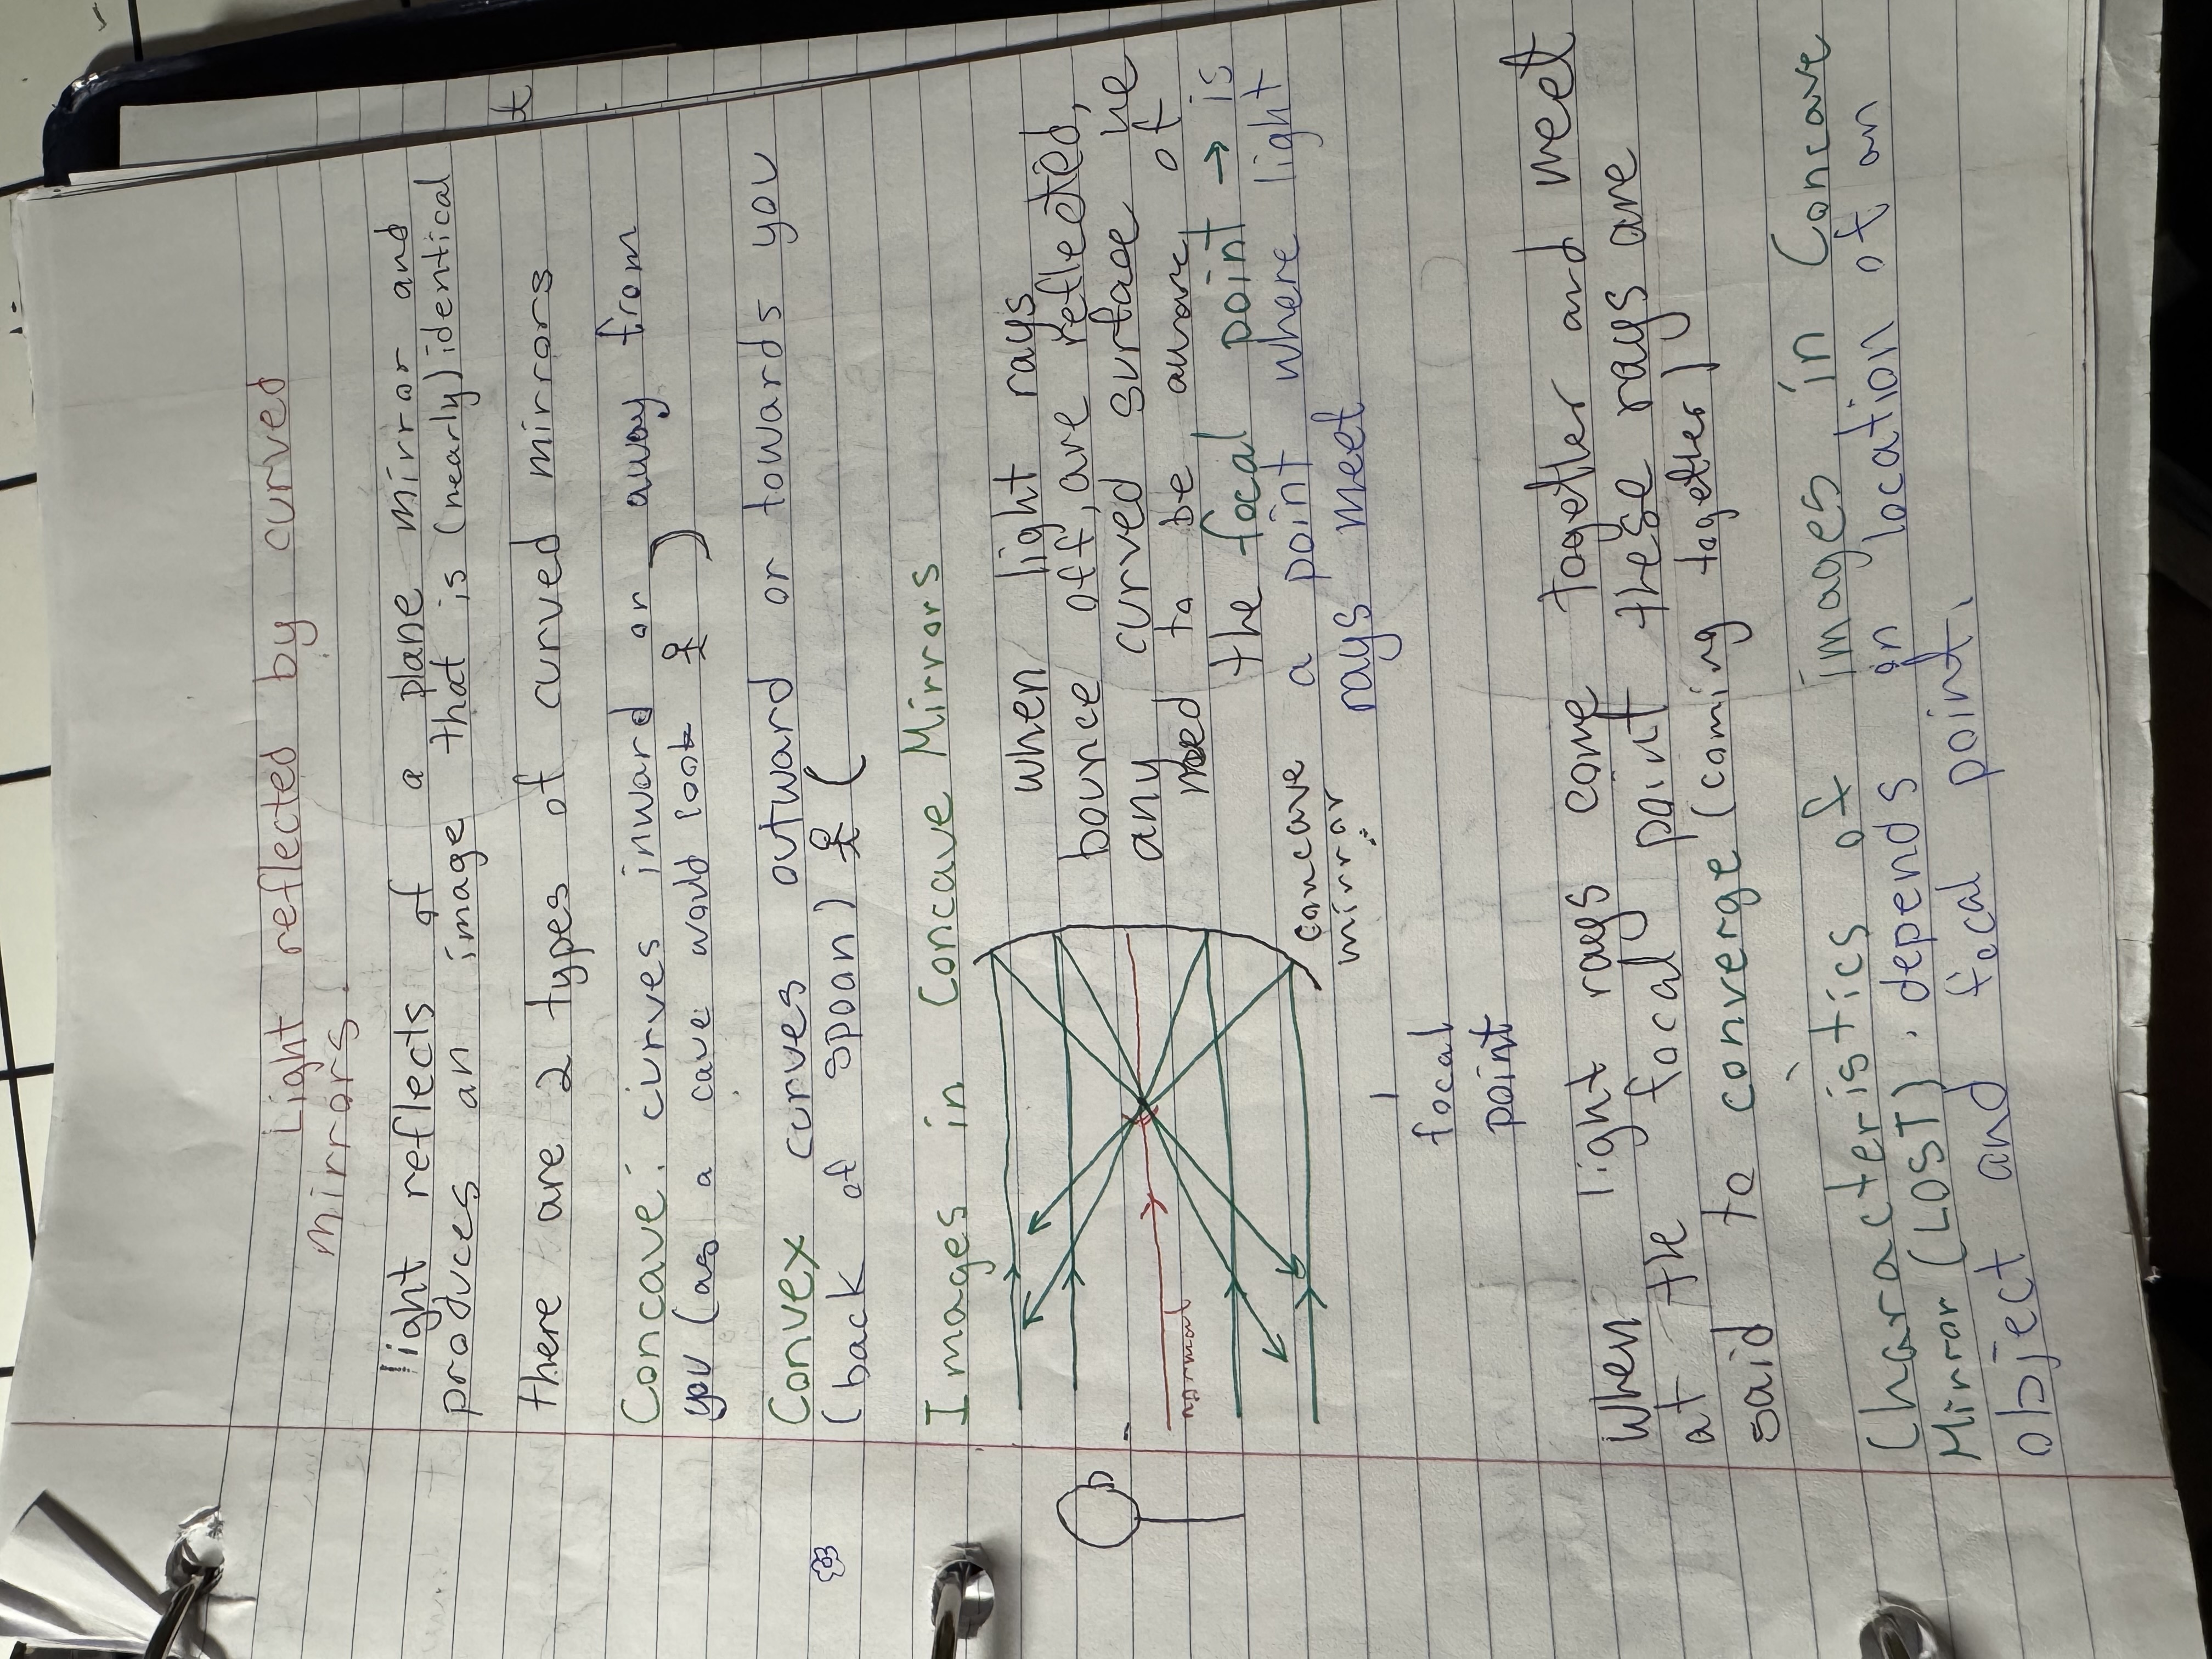 Light reflected by curved
mirrors.
light reflects of a plane mirror and
produces an image that is (nearly) identical
there are 2 types of curved mirrors
Concave: curves inward or away from
you (as a cave would look )
Convex curves outward or towards you
(back of spoon) (
Images in Concave Mirrors
when light rays
bounce off, are reflected,
any curved surface we
need to be aware of
the focal point → is
a point where light
rays meet
normal
concave
mirror
focal
point
When light rays come together and meet
at the focal point these rays are
said to converge (coming together)
Characteristics of images in Concave
Mirror (LOST): depends on location of an
object and focal point.